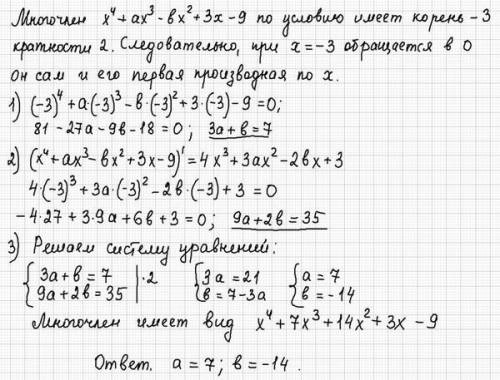 Многочлен x⁴+ax³-bx²+3x-9 по условию имеет корень -3
кратности 2. Следовательно, при x=-3 обращается в 0
он сам и его первая производная по x.
1) (-3)⁴+a·(-3)³-b·(-3)²+3·(-3)-9=0;
81-27a-9b-18=0; 3a+b=7
2) (x⁴+ax³-bx²+3x-9)'=4x³+3ax²-2bx+3
4·(-3)³+3a·(-3)²-2b·(-3)+3=0
-4·27+3·9a+6b+3=0; 9a+2b=35
3) Решаем систему уравнений:
{3a+b=7 |·2 {3a=21 {a=7
{9a+2b=35 | {b=7-3a {b=-14
Многочлен имеет вид x⁴+7x³+14x²+3x-9
Ответ. a=7; b=-14.